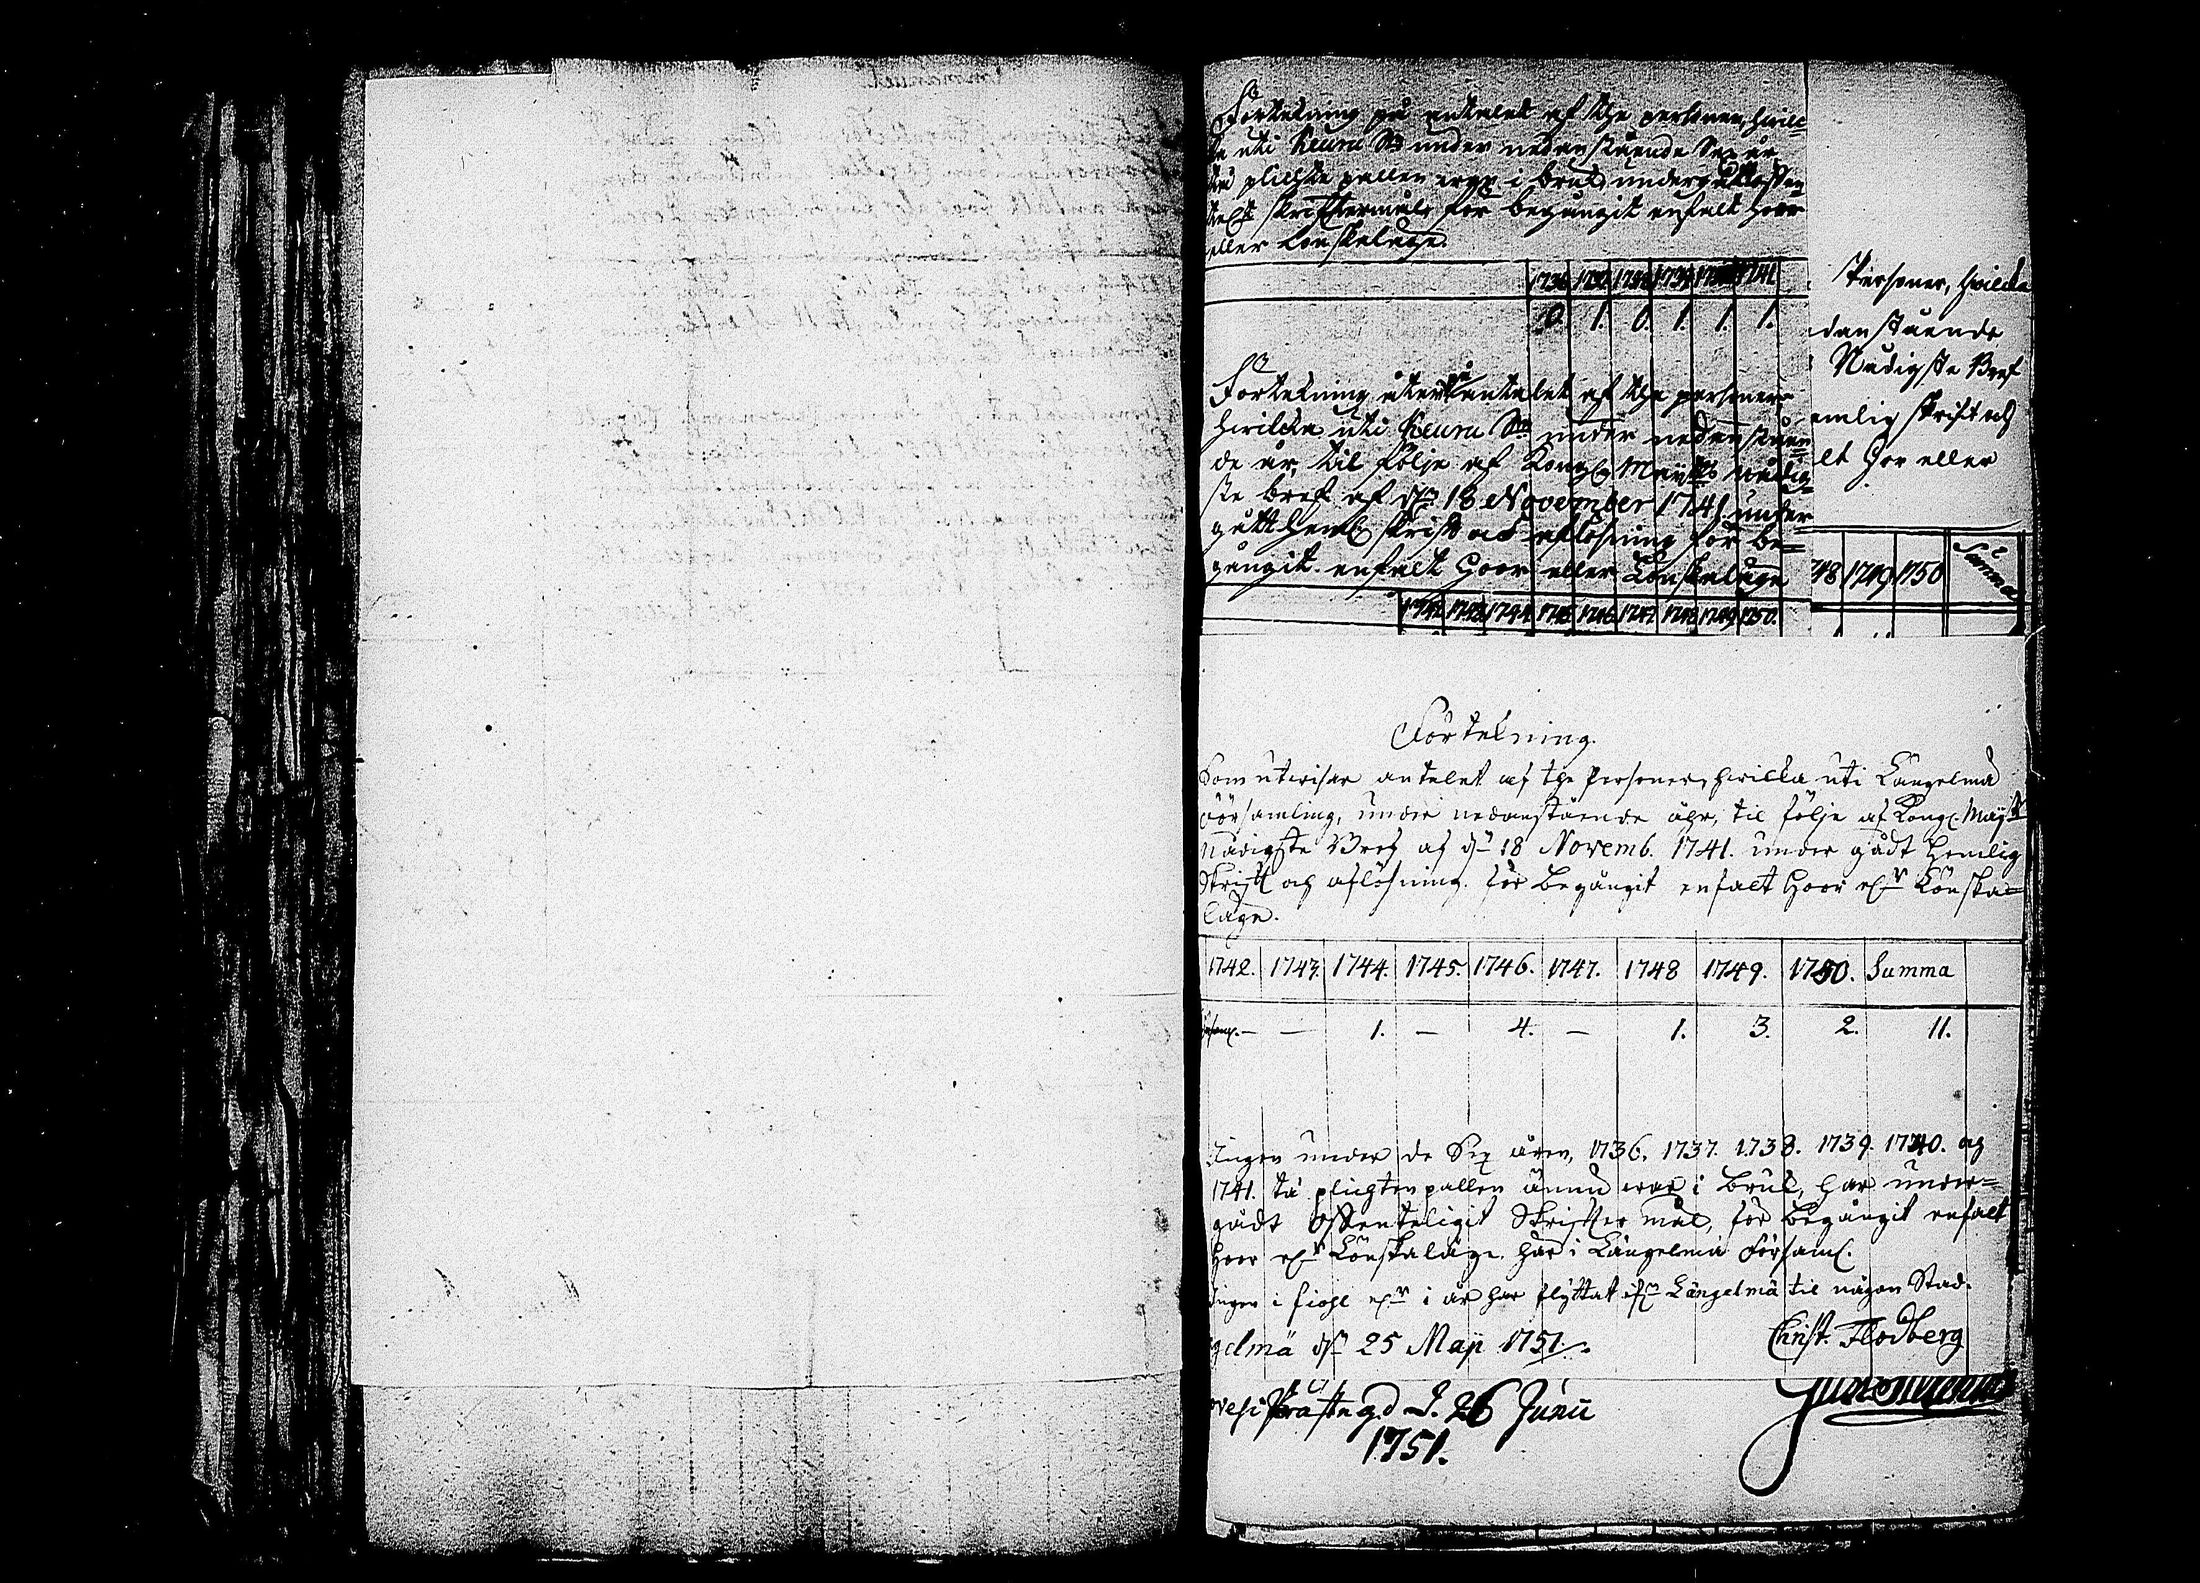 Förtekning på antalet af the personer, hvilc-
ka uti Keuru Sn under nedanstående Sex år
tå plichte pallen war i bruk, undergått offen-
skriftermål, för begångit enfalt hoor
eller Lönskaläge.
1736. 1737. 1738. 1739. 1740. 1741.
0. 1. 0. 1. 1. 1.
Förtekning åter på antalet af the personer
hvilcka uti Keuru Sn under nedanståen-
de år, til följe af Kongl. Maijts nådig-
ste bref af dn 18 November 1741 under
gått heml. skrift och aflösning för be-
gångit enfalt Hoor eller Lönskaläge
1742. 1743. 1744. 1745. 1746. 1747. 1748. 1749. 1750.
Personer, hvilcka
danstående
Nådigste Bref
emlig skrift och
lt Hor eller
748 1749 1750 Summa
Förtekning.
Som utwisar antalet af the Personer, hwilka uti Längelmä
Församling, under nedanstående åhr, til följe af Kongl. Maijts
nådigste Bref af dn 18 Novemb. 1741. under gådt hemlig
Skrift och aflösning. för begångit enfalt Hoor elr Lönska-
läge.
1742. 1743. 1744. 1745. 1746. 1747. 1748 1749. 1750. Summa
— — 1. — 4. — 1. 3. 2. 11.
Ingen under de Sex åren, 1736. 1737. 1738. 1739. 1740. och
1741. tå plichtepallen ännu war i bruk, har under-
gådt Offenteligit Skriftermål, för begångit enfalt
Hoor elr Lönskaläge här i Längelmä Församl.
Ingen i fiohl elr i år har flyttat ifrn Längelmä til någon Stad.
gelmä dn 25 Maji 1751.
Christ. Flodberg
vesi Prästegd d. 26 Junii
1751.